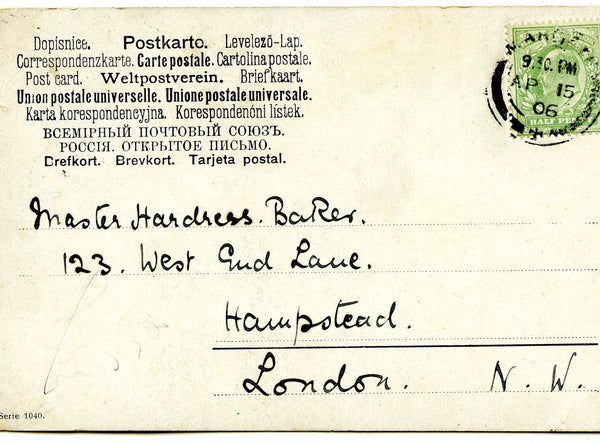 Dopisnice. Postkarto. Levelező-Lap.
Correspondenzkarte. Carte postale. Cartolina postale.
Post card. Weltpostverein. Briefkaart.
Union postale universelle. Unione postale universale.
Karta korespondencyjna. Korespondenční lístek.
ВСЕМІРНЫЙ ПОЧТОВЫЙ СОЮЗЪ.
РОССІЯ. ОТКРЫТОЕ ПИСЬМО.
Brefkort. Brevkort. Tarjeta postal.
9.30 PM
AP 15
06
HALF PEN
Master Hardress. Baker.
123. West End Lane.
Hampstead.
London. N. W.
Serie 1040.